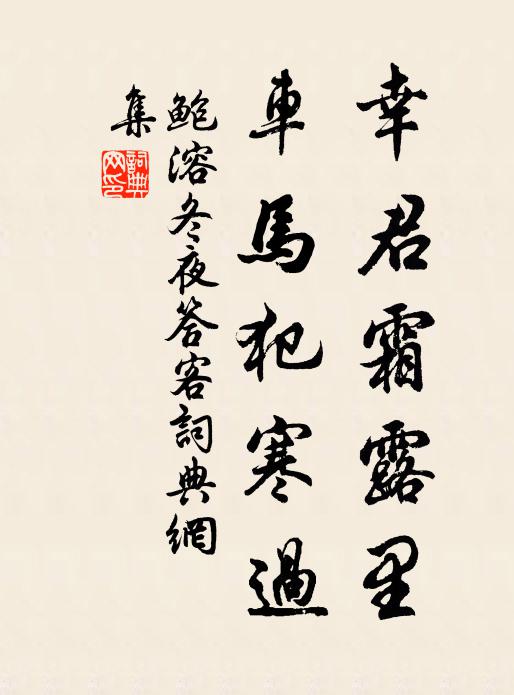 幸君霜露里
車馬犯寒過
鮑溶冬夜答客詞典網
集
詞典
网印